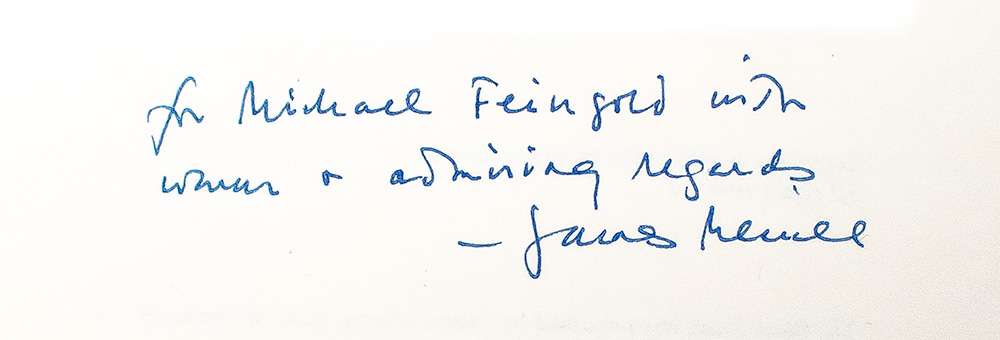 for Michael Feingold with
warm + admiring regards
— James Merrill